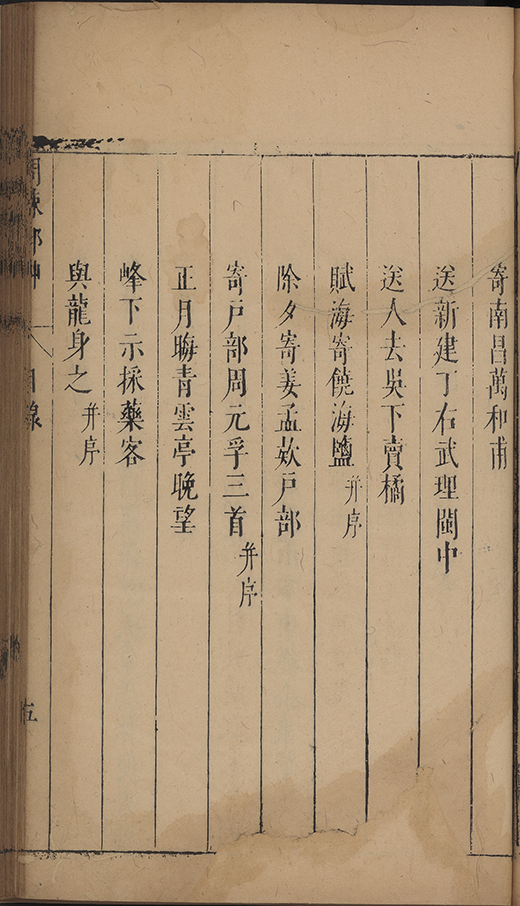 寄南昌萬和甫
送新建丁右武理閩中
送人去吳下賣橘
賦海寄饒海鹽 并序
除夕寄姜孟欵戸部
寄戸部周元孚三首 并序
正月晦青雲亭晚望
峰下示採藥客
與龍身之 并序
目錄
五